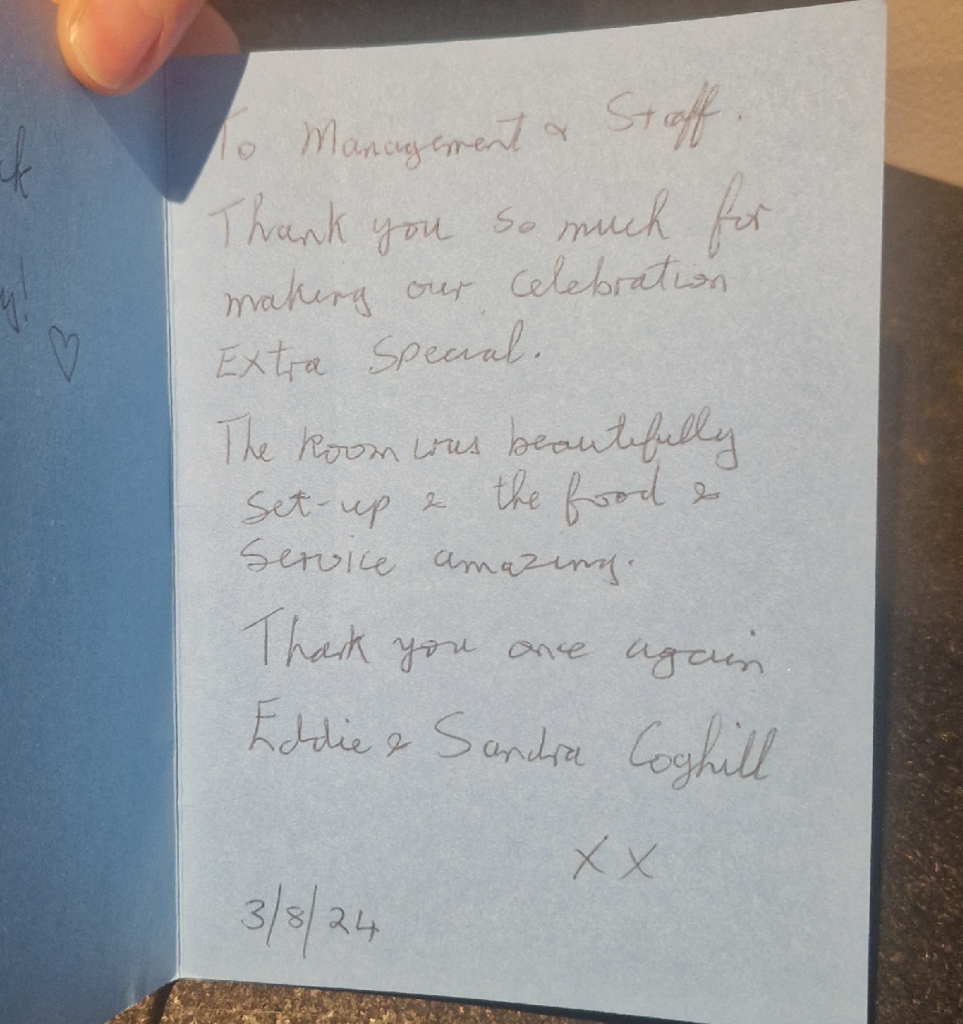 To Management & Staff.
Thank you so much for
making our celebration
Extra Special.
The Room was beautifully
set-up & the food &
Service amazing.
Thank you once again
Eddie & Sandra Coghill
XX
3/8/24